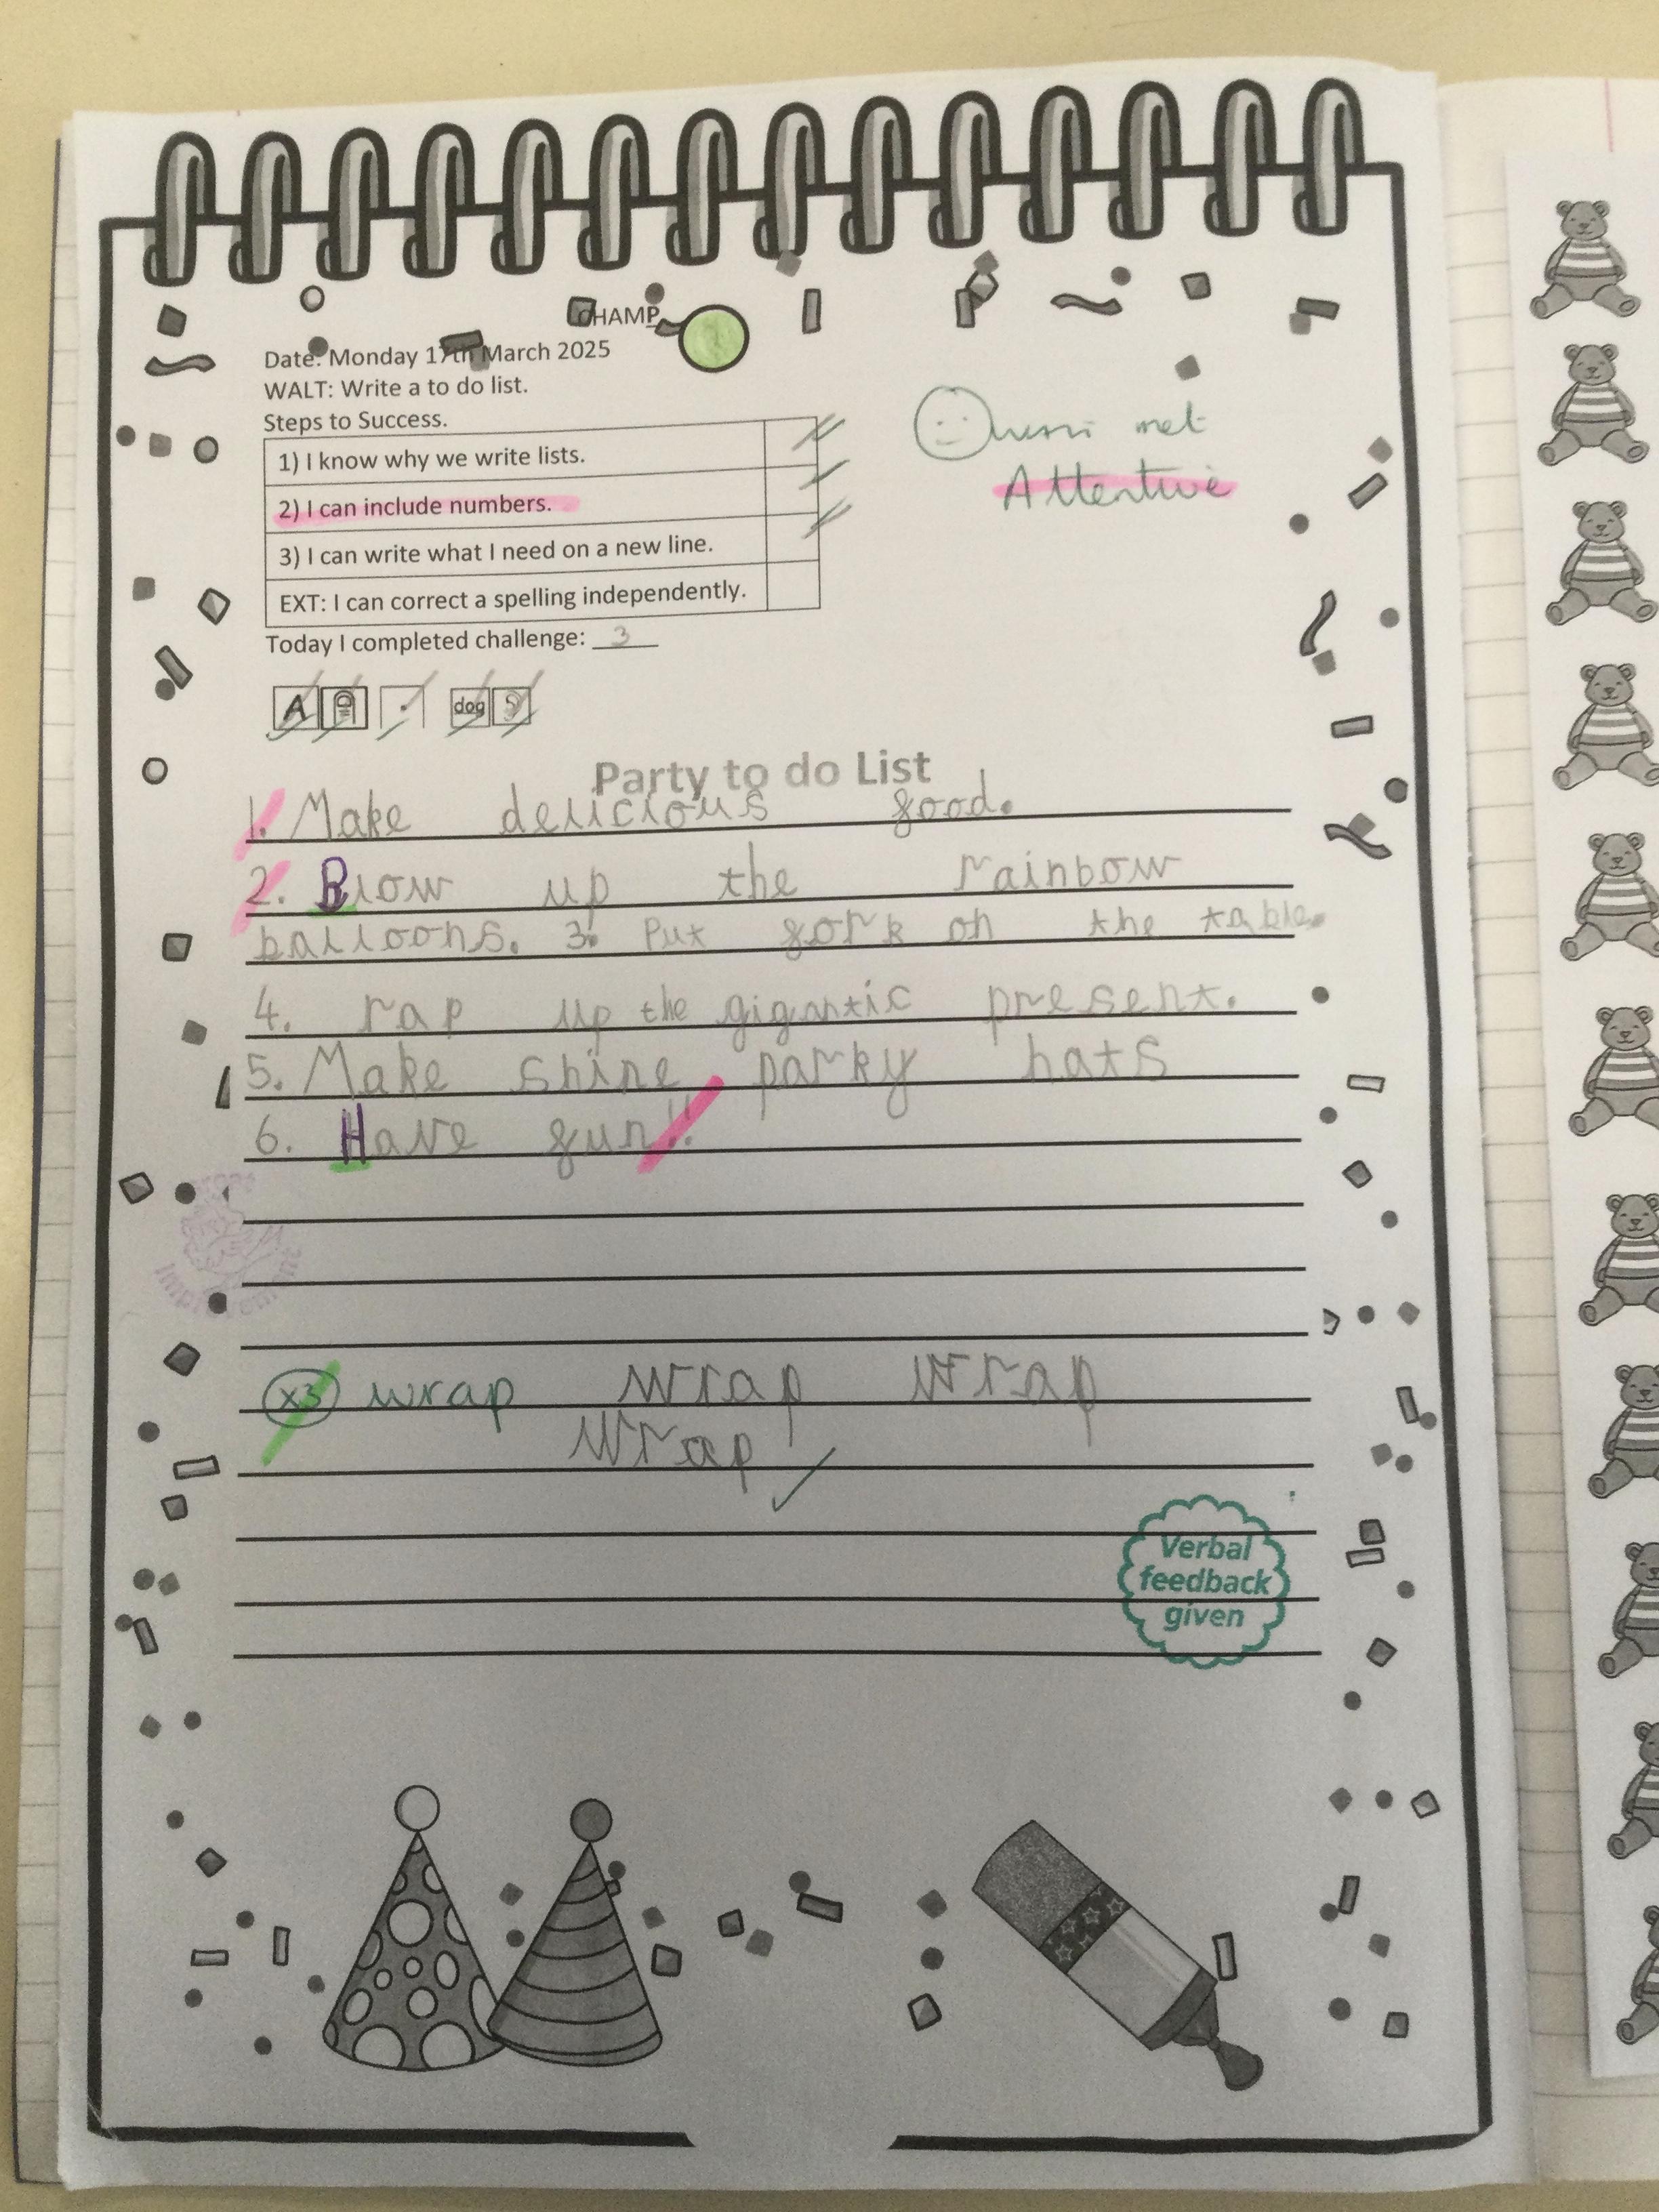 CHAMP
Date: Monday 17th March 2025
WALT: Write a to do list.
Steps to Success.
1) I know why we write lists.
2) I can include numbers.
3) I can write what I need on a new line.
EXT: I can correct a spelling independently.
Today I completed challenge: 3
met
Attentive
A
dog
Party to do List
1. Make delicious food.
2. Blow up the rainbow
balloons. 3. Put fork on the table.
4. rap up the gigantic present.
5. Make shine parky hats
6. Have fun!!
Improvement
x3 wrap wrap wrap
wrap
Verbal
feedback
given